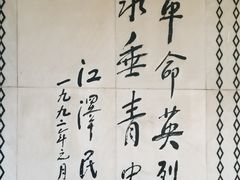 革命英烈
永垂青史
江泽民
一九九二年元月